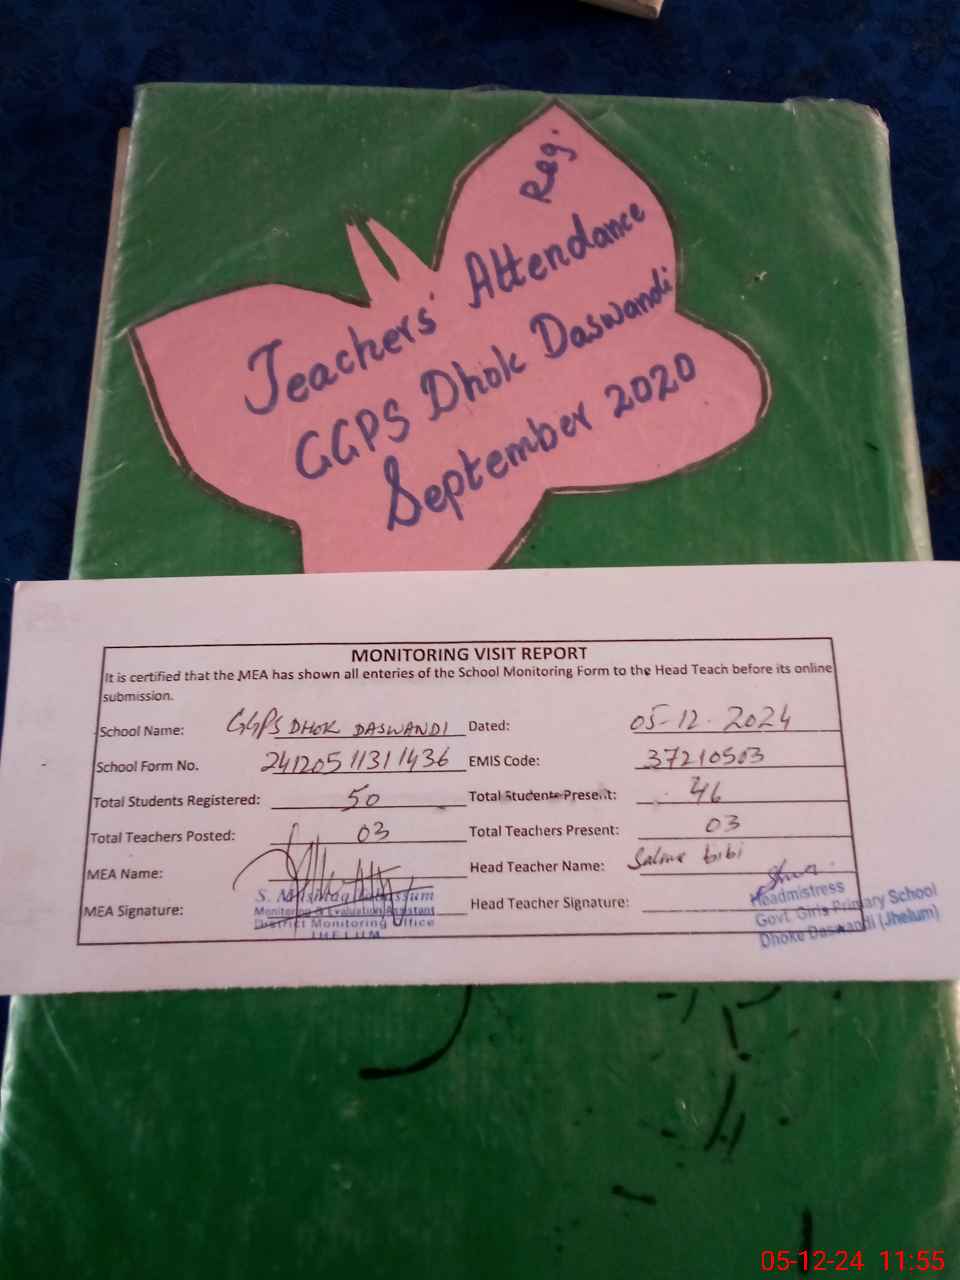 Reg.
Teachers' Attendance
GGPS Dhok Daswandi
September 2020
MONITORING VISIT REPORT
It is certified that the MEA has shown all enteries of the School Monitoring Form to the Head Teach before its online
submission.
School Name: GGPS DHOK DASWANDI Dated: 05-12-2024
School Form No. 24120511311436 EMIS Code: 37210503
Total Students Registered: 50 Total Students Present: 46
Total Teachers Posted: 03 Total Teachers Present: 03
MEA Name: Head Teacher Name: Salma bibi
MEA Signature: S. Head Teacher Signature:
Monitoring & Evaluation Assistant
District Monitoring Office
JHELUM
Headmistress
Govt. Girls Primary School
Dhoke Daswandi (Jhelum)
05-12-24 11:55